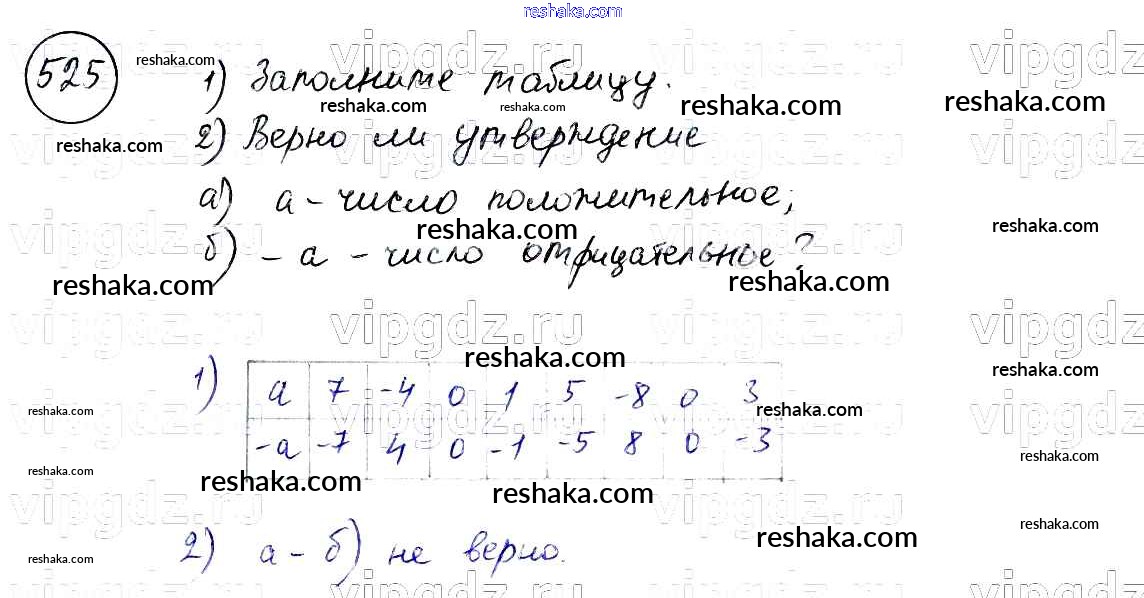 reshaka.com
525 1) Заполните таблицу.
2) Верно ли утверждение
а) а - число положительное;
б) - а - число отрицательное?
1) а 7 -4 0 1 5 -8 0 3
-а -7 4 0 -1 -5 8 0 -3
2) а - б) не верно.
vipgdz.ru
reshaka.com